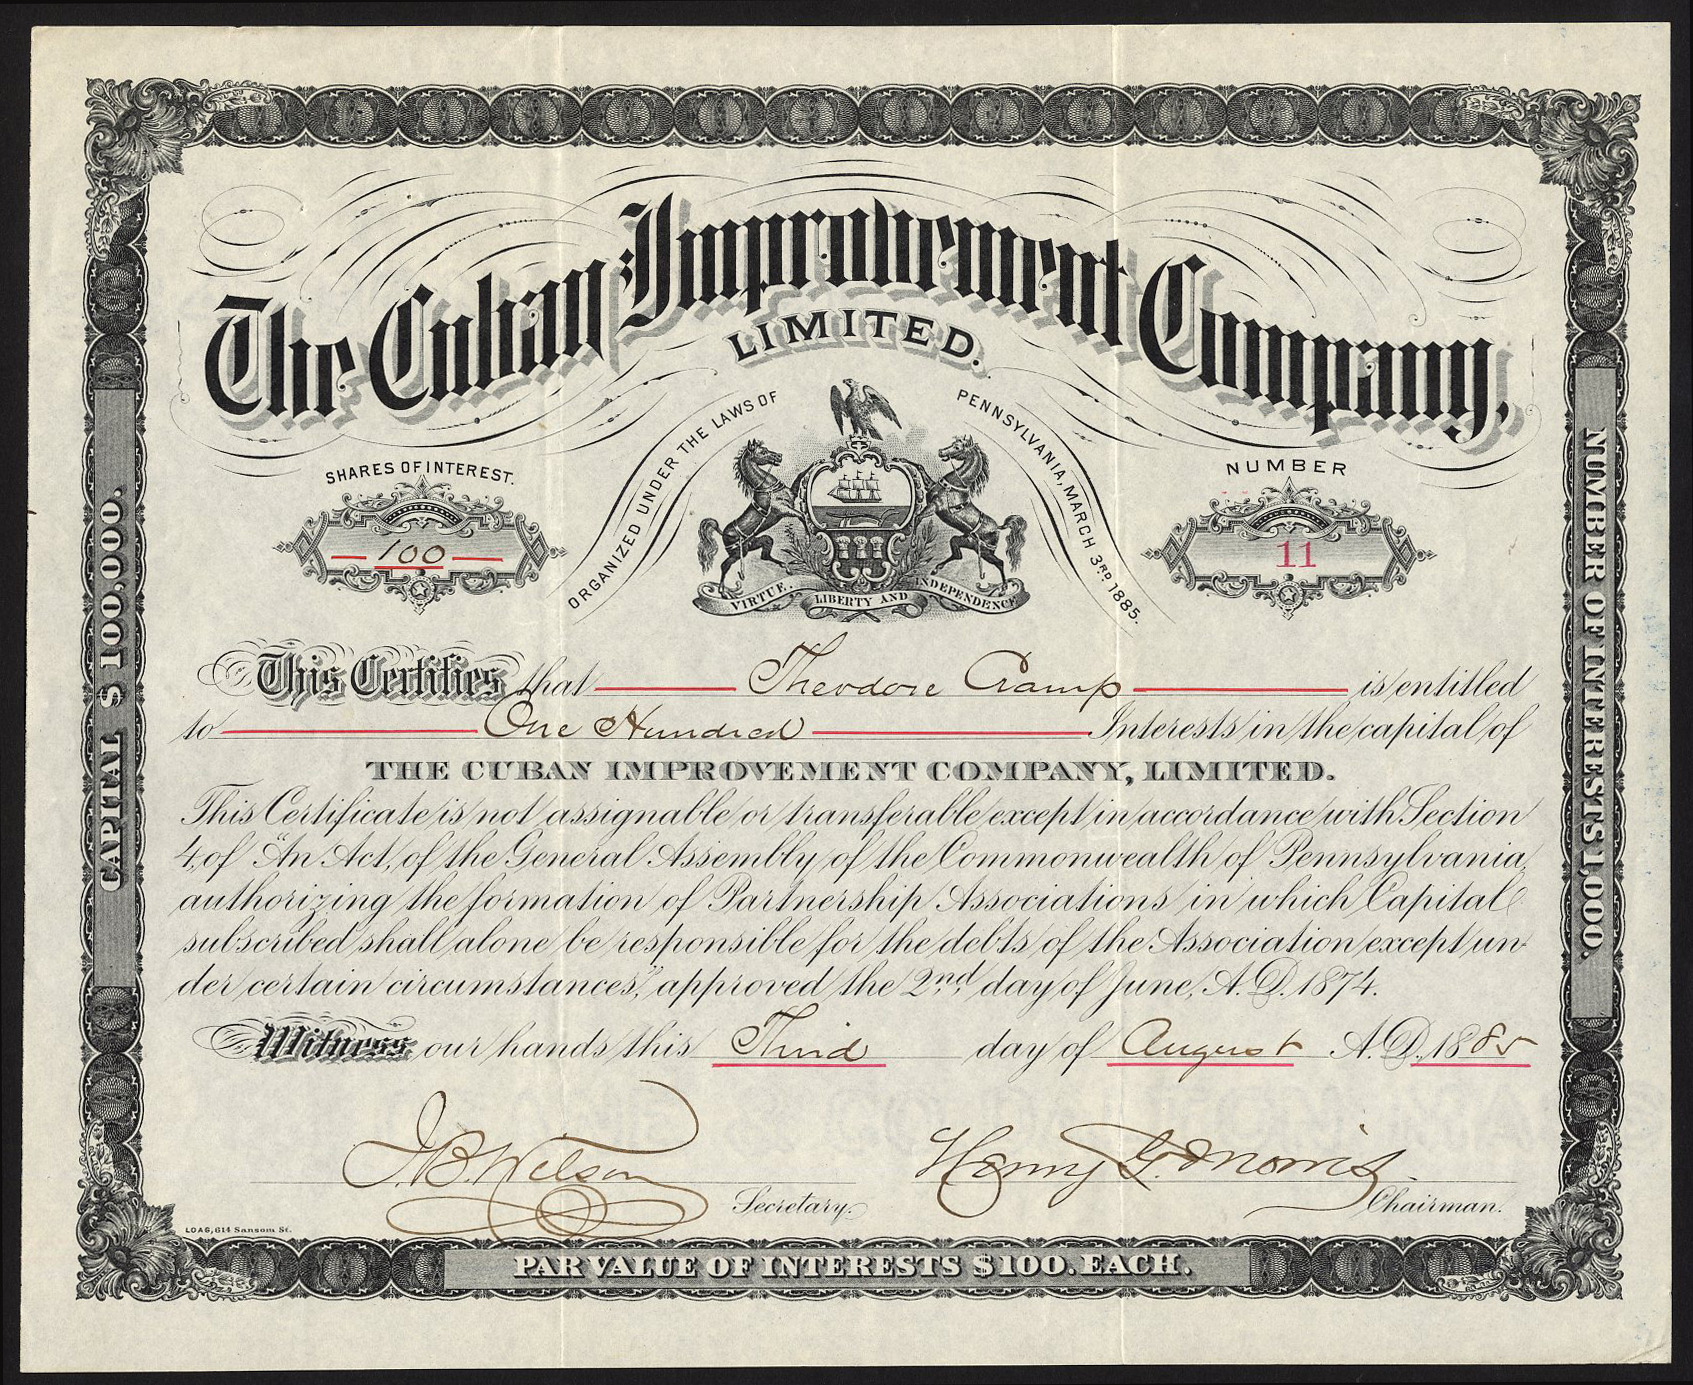 The Cuban Improvement Company,
LIMITED.
ORGANIZED UNDER THE LAWS OF PENNSYLVANIA, MARCH 3RD 1885.
SHARES OF INTEREST.
100
NUMBER
11
VIRTUE, LIBERTY AND INDEPENDENCE
CAPITAL $100,000.
NUMBER OF INTERESTS 1,000.
This Certifies that Theodore Cramp is entitled
to One Hundred Interests in the capital of
THE CUBAN IMPROVEMENT COMPANY, LIMITED.
This Certificate is not assignable or transferable except in accordance with Section
4, of "An Act, of the General Assembly of the Commonwealth of Pennsylvania,
authorizing the formation of Partnership Associations in which Capital
subscribed shall alone be responsible for the debts of the Association except un-
der certain circumstances," approved the 2nd day of June, A.D. 1874.
Witness our hands this Third day of August A.D. 1885
J.B. Wilson Secretary.
Henry G. Morris Chairman.
LOAG, 614 Sansom St.
PAR VALUE OF INTERESTS $100. EACH.